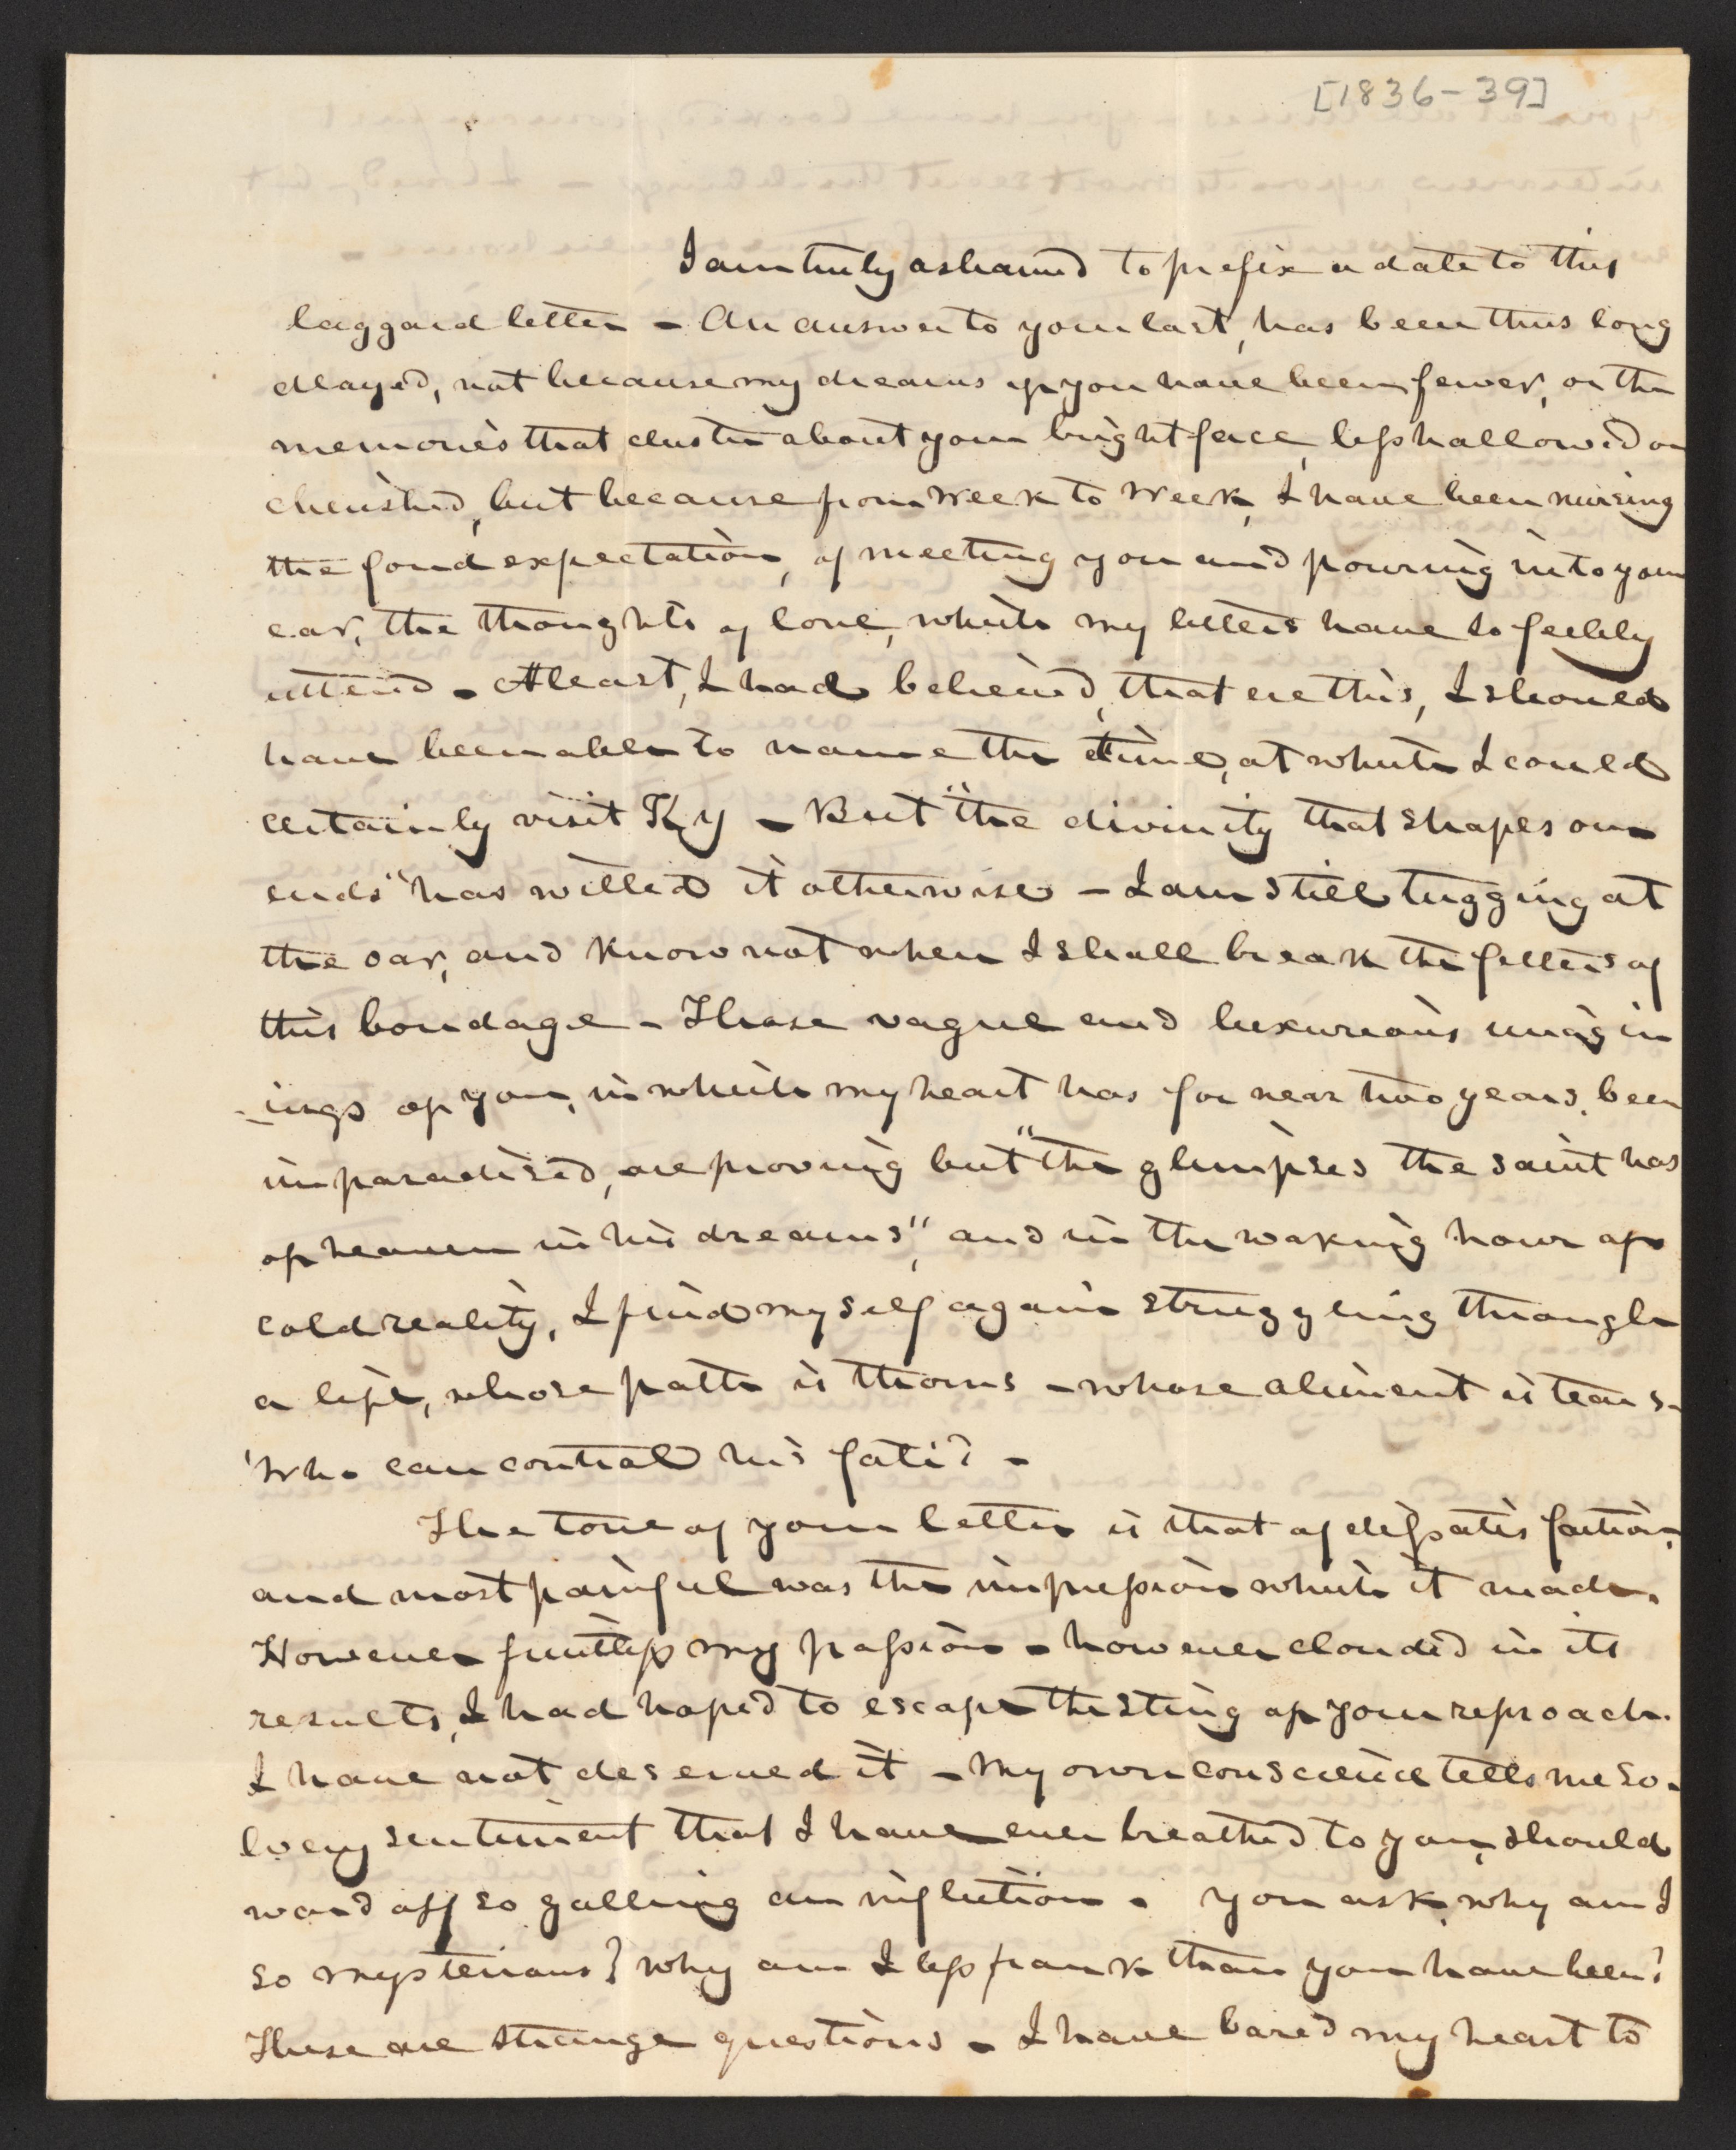 [1836-39]
I am truly ashamed to prefix a date to this
laggard letter - An answer to your last, has been thus long
delayed, not because my dreams of you have been fewer, or the
memories that cluster about your bright face, less hallowed or
cherished, but because from week to week, I have been nursing
the fond expectation, of meeting you and pouring into your
ear, the thoughts of love, which my letters have so feebly
uttered - At least, I had believed, that ere this, I should
have been able to name the time, at which I could
certainly visit Ky - But "the divinity that shapes our
ends" has willed it otherwise - I am still tugging at
the oar, and know not when I shall break the fetters of
this bondage - Those vague and luxurious imagin
-ings of you, in which my heart has for near two years, been
imparadised, are proving but "the glimpses the saint has
of heaven in his dreams", and in the waking hour of
cold reality, I find myself again struggling through
a life, whose path is thorns - whose aliment is tears -
'Who can control his fate? -
The tone of your letter is that of dissatisfaction,
and most painful was the impression which it made.
However fruitless my passion - however clouded in its
results, I had hoped to escape the sting of your reproach.
I have not deserved it - My own conscience tells me so -
Every sentiment that I have ever breathed to you, should
ward off so galling an infliction. You ask, why am I
so mysterious? why am I less frank than you have been?
These are strange questions - I have bared my heart to